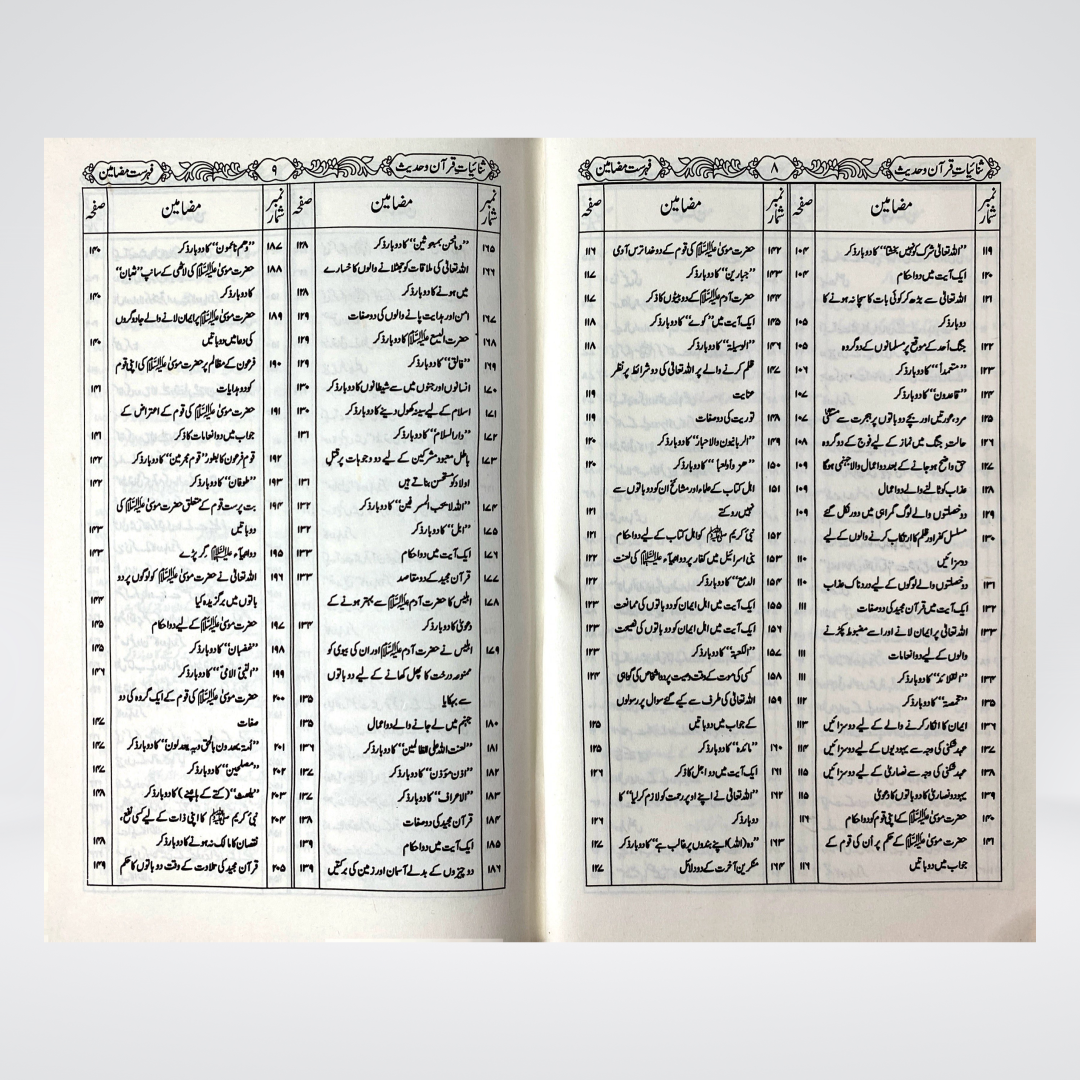 ثنائیاتِ قرآن وحدیث ۸ فہرست مضامین
نمبر شمار مضامین صفحہ نمبر شمار مضامین صفحہ
۱۱۹ ”اللہ تعالیٰ شرک کو نہیں بخشتا“ کا دو بار ذکر ۱۰۴
۱۲۰ ایک آیت میں دو احکام ۱۰۴
۱۲۱ اللہ تعالیٰ سے بڑھ کر کوئی بات کا سچا نہ ہونے کا
دو بار ذکر ۱۰۵
۱۲۲ جنگ اُحد کے موقع پر مسلمانوں کے دو گروہ ۱۰۵
۱۲۳ ”متعمداً“ کا دو بار ذکر ۱۰۶
۱۲۴ ”قاعدون“ کا دو بار ذکر ۱۰۷
۱۲۵ مرد، عورتیں اور بچے دو باتوں پر ہجرت سے مستثنیٰ ۱۰۷
۱۲۶ حالتِ جنگ میں نماز کے لیے فوج کے دو گروہ ۱۰۸
۱۲۷ حق واضح ہو جانے کے بعد دو اعمال والا جہنمی ہوگا ۱۰۹
۱۲۸ عذاب کو ٹالنے والے دو اعمال ۱۰۹
۱۲۹ دو خصلتوں والے لوگ گمراہی میں دور نکل گئے ۱۰۹
۱۳۰ مسلسل کفر اور ظلم کا ارتکاب کرنے والوں کے لیے
دو سزائیں ۱۱۰
۱۳۱ دو خصلتوں والے لوگوں کے لیے دردناک عذاب ۱۱۰
۱۳۲ ایک آیت میں قرآن مجید کی دو صفات ۱۱۱
۱۳۳ اللہ تعالیٰ پر ایمان لانے اور اسے مضبوط پکڑنے
والوں کے لیے دو انعامات ۱۱۱
۱۳۴ ”القلائد“ کا دو بار ذکر ۱۱۱
۱۳۵ ”مخمصۃ“ کا دو بار ذکر ۱۱۲
۱۳۶ ایمان کا انکار کرنے والے کے لیے دو سزائیں ۱۱۳
۱۳۷ عہد شکنی کی وجہ سے یہودیوں کے لیے دو سزائیں ۱۱۴
۱۳۸ عہد شکنی کی وجہ سے نصاریٰ کے لیے دو سزائیں ۱۱۵
۱۳۹ یہود و نصاریٰ کا دو باتوں کا دعویٰ ۱۱۵
۱۴۰ حضرت موسیٰ علیہ السلام کے اپنی قوم کو دو احکام ۱۱۶
۱۴۱ حضرت موسیٰ علیہ السلام کے حکم پر اُن کی قوم کے
جواب میں دو باتیں ۱۱۶
۱۴۲ حضرت موسیٰ علیہ السلام کی قوم کے دو خدا ترس آدمی ۱۱۶
۱۴۳ ”جبارین“ کا دو بار ذکر ۱۱۷
۱۴۴ حضرت آدم علیہ السلام کے دو بیٹوں کا ذکر ۱۱۷
۱۴۵ ایک آیت میں ”کوے“ کا دو بار ذکر ۱۱۸
۱۴۶ ”الوسیلۃ“ کا دو بار ذکر ۱۱۸
۱۴۷ ظلم کرنے والے پر اللہ تعالیٰ کی دو شرائط پر نظر
عنایت ۱۱۹
۱۴۸ توریت کی دو صفات ۱۱۹
۱۴۹ ”الربانیون والاحبار“ کا دو بار ذکر ۱۲۰
۱۵۰ ”ھزواً ولعباً“ کا دو بار ذکر ۱۲۰
۱۵۱ اہل کتاب کے علماء اور مشائخ ان کو دو باتوں سے
نہیں روکتے ۱۲۱
۱۵۲ نبی کریم ﷺ کو اہل کتاب کے لیے دو احکام ۱۲۱
۱۵۳ بنی اسرائیل میں کفار پر دو انبیآء علیہما السلام کی لعنت ۱۲۲
۱۵۴ الدمع“ کا دو بار ذکر ۱۲۲
۱۵۵ ایک آیت میں اہل ایمان کو دو باتوں کی ممانعت ۱۲۳
۱۵۶ ایک آیت میں اہل ایمان کو دو باتوں کی نصیحت ۱۲۳
۱۵۷ ”الکعبۃ“ کا دو بار ذکر ۱۲۳
۱۵۸ کسی کی موت کے وقت وصیت پر دو اشخاص کی گواہی ۱۲۴
۱۵۹ اللہ تعالیٰ کی طرف سے کیے گئے سوال پر رسولوں
کے جواب میں دو باتیں ۱۲۵
۱۶۰ ”مائدہ“ کا دو بار ذکر ۱۲۵
۱۶۱ ایک آیت میں دو اجل کا ذکر ۱۲۶
۱۶۲ ”اللہ تعالیٰ نے اپنے اوپر رحمت کو لازم کر لیا“ کا
دو بار ذکر ۱۲۶
۱۶۳ ”وہ (اللہ) اپنے بندوں پر غالب ہے“ کا دو بار ذکر ۱۲۷
۱۶۴ منکرین آخرت کے دو دلائل ۱۲۷
ثنائیاتِ قرآن وحدیث ۹ فہرست مضامین
نمبر شمار مضامین صفحہ نمبر شمار مضامین صفحہ
۱۶۵ ”ومانحن بمبعوثین“ کا دو بار ذکر ۱۲۸
۱۶۶ اللہ تعالیٰ کی ملاقات کو جھٹلانے والوں کا خسارے
میں ہونے کا دو بار ذکر ۱۲۸
۱۶۷ امن اور ہدایت پانے والوں کی دو صفات ۱۲۹
۱۶۸ حضرت الیسع علیہ السلام کا دو بار ذکر ۱۲۹
۱۶۹ ”فالق“ کا دو بار ذکر ۱۲۹
۱۷۰ انسانوں اور جنوں میں سے شیطانوں کا دو بار ذکر ۱۳۰
۱۷۱ اسلام کے لیے سینہ کھول دینے کا دو بار ذکر ۱۳۰
۱۷۲ ”دار السلام“ کا دو بار ذکر ۱۳۱
۱۷۳ باطل معبود مشرکین کے لیے دو وجوہات پر قتلِ
اولاد کو مستحسن بناتے ہیں ۱۳۱
۱۷۴ ”اللہ لا یحب المسرفین“ کا دو بار ذکر ۱۳۲
۱۷۵ ”ابل“ کا دو بار ذکر ۱۳۲
۱۷۶ ایک آیت میں دو احکام ۱۳۳
۱۷۷ قرآن مجید کے دو مقاصد ۱۳۳
۱۷۸ ابلیس کا حضرت آدم علیہ السلام سے بہتر ہونے کے
دعویٰ کا دو بار ذکر ۱۳۴
۱۷۹ ابلیس نے حضرت آدم علیہ السلام اور ان کی بیوی کو
ممنوعہ درخت کا پھل کھانے کے لیے دو باتوں
سے بہکایا ۱۳۵
۱۸۰ جہنم میں لے جانے والے دو اعمال ۱۳۵
۱۸۱ ”لعنت اللہ علی الظالمین“ کا دو بار ذکر ۱۳۶
۱۸۲ ”اذن مؤذن“ کا دو بار ذکر ۱۳۷
۱۸۳ ”الاعراف“ کا دو بار ذکر ۱۳۷
۱۸۴ قرآن مجید کی دو صفات ۱۳۸
۱۸۵ ایک آیت میں دو احکام ۱۳۹
۱۸۶ دو چیزوں کے بدلے آسمان اور زمین کی برکتیں ۱۳۹
۱۸۷ ”وھم نائمون“ کا دو بار ذکر ۱۴۰
۱۸۸ حضرت موسیٰ علیہ السلام کی لاٹھی کے سانپ ”ثعبان“
کا دو بار ذکر ۱۴۰
۱۸۹ حضرت موسیٰ علیہ السلام پر ایمان لانے والے جادوگروں
کی دعا میں دو باتیں ۱۴۰
۱۹۰ فرعون کے مظالم پر حضرت موسیٰ علیہ السلام کی اپنی قوم
کو دو ہدایات ۱۴۱
۱۹۱ حضرت موسیٰ علیہ السلام کی قوم کے اعتراض کے
جواب میں دو انعامات کا ذکر ۱۴۱
۱۹۲ قوم فرعون کا بطور ”قوم مجرمین“ کا دو بار ذکر ۱۴۲
۱۹۳ ”طوفان“ کا دو بار ذکر ۱۴۲
۱۹۴ بت پرست قوم کے متعلق حضرت موسیٰ علیہ السلام کی
دو باتیں ۱۴۳
۱۹۵ دو انبیآء علیہما السلام گر پڑے ۱۴۳
۱۹۶ اللہ تعالیٰ نے حضرت موسیٰ علیہ السلام کو لوگوں پر دو
باتوں میں برگزیدہ کیا ۱۴۴
۱۹۷ حضرت موسیٰ علیہ السلام کے لیے دو احکام ۱۴۵
۱۹۸ ”غضبان“ کا دو بار ذکر ۱۴۵
۱۹۹ ”النبیّ الامیّ“ کا دو بار ذکر ۱۴۶
۲۰۰ حضرت موسیٰ علیہ السلام کی قوم کے ایک گروہ کی دو
صفات ۱۴۷
۲۰۱ ”أمۃ یھدون بالحق وبہ یعدلون“ کا دو بار ذکر ۱۴۷
۲۰۲ ”مصلحین“ کا دو بار ذکر ۱۴۷
۲۰۳ ”یلھث“ (کتے کے ہانپنے) کا دو بار ذکر ۱۴۸
۲۰۴ نبی کریم ﷺ کا اپنی ذات کے لیے کسی نفع،
نقصان کا مالک نہ ہونے کا دو بار ذکر ۱۴۸
۲۰۵ قرآن مجید کی تلاوت کے وقت دو باتوں کا حکم ۱۴۹